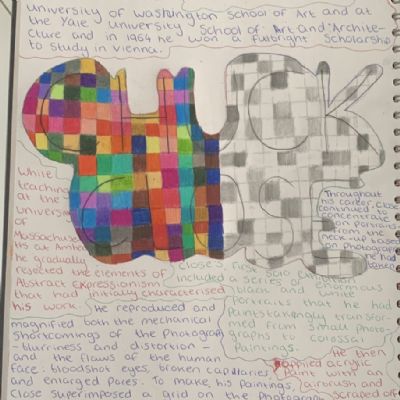 University of Washington School of Art and at
the Yale University School of Art and Archite-
cture and in 1964 he won a Fulbright Scholarship
to study in Vienna.
CHUCK
CLOSE
While
teaching
at the
University
of
Massachuse
tts at Amhe
he gradually
rejected the elements of
Abstract Expressionism
that had initially characterised
his work.
Throughout
his career, Close
continued to
concentrate
on portraits
from the
neck-up based
on photographs
he had
taken
Close's first solo exhibition
included a series of enormous
black and white
portraits that he had
Painstakingly transfor-
med from small photo-
graphs to colossal
Paintings.
He reproduced and
magnified both the mechanical
shortcomings of the Photograph
- blurriness and distortion -
and the flaws of the human
face: bloodshot eyes, broken capillaries
and enlarged Pores. To make his Paintings,
Close superimposed a grid on the Photograph
He then
applied acrylic
Paint with an
airbrush and
scraped off